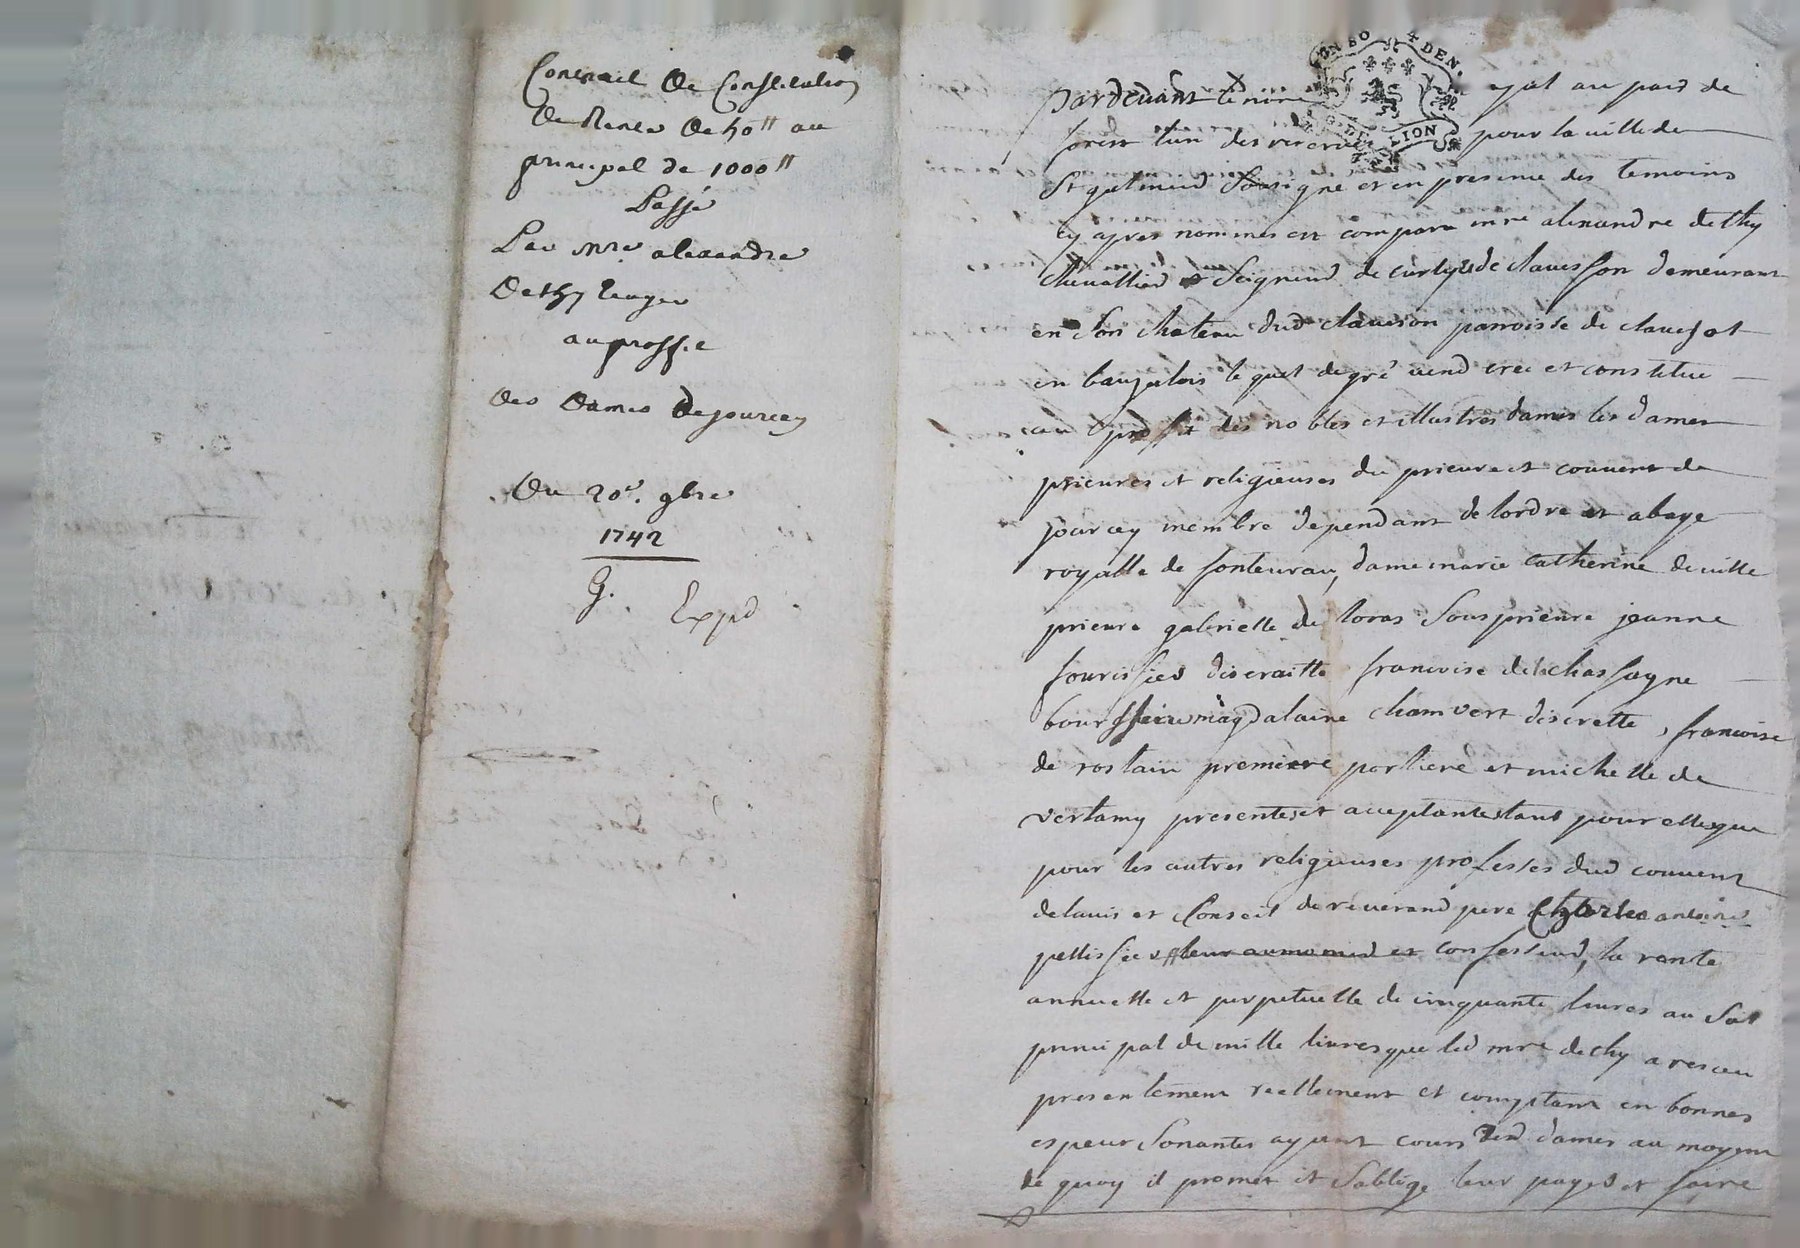 Contract De Constitution
De Rente De 50# au
principal de 1000#
Passé
Par Mre. alexandre
Dethy Leugny
au proffit
Des Dames De Jourcey
Du 20e. 9bre
1742
G. Expd
pardevant le no[...] royal au pais de
forest lun des reservés pour la ville de
St galmier Soussigné et en presence des temoins
cy apres nommés est comparu mre alexandre de thy
chevallier Seigneur de curly et de claveson demeurant
en Son chateau dud claveson parroisse de clavesol
en baujolois le quel de gré vend cree et constitue
au proffit des nobles et illustres dames les dames
prieures et religieuses du prieure et couvent de
jourcey membre dependant de lordre et abaye
royalle de fonteuvrau, dame marie catherine de ville
prieure gabrielle de loras Sousprieure jeanne
fourissier discraitte francoise de la chassagne
bourssiere magdalaine chamvert discrette, francoise
de rostain premiere portiere et michelle de
vertamy presentes et acceptantes tant pour elles que
pour les autres religieuses professes dud couvent
de lavis et Conseil de reverand pere Charles antoine
pellissier leur aumonier et confesseur, la rente
annuelle et perpetuelle de cinquante livres au Sort
principal de mille livres que led mre de thy aresceu
presentement reellement et comptant en bonnes
especes Sonantes ayant cours desd dames au moyen
de quoy il promet et Soblige leur payer et faire